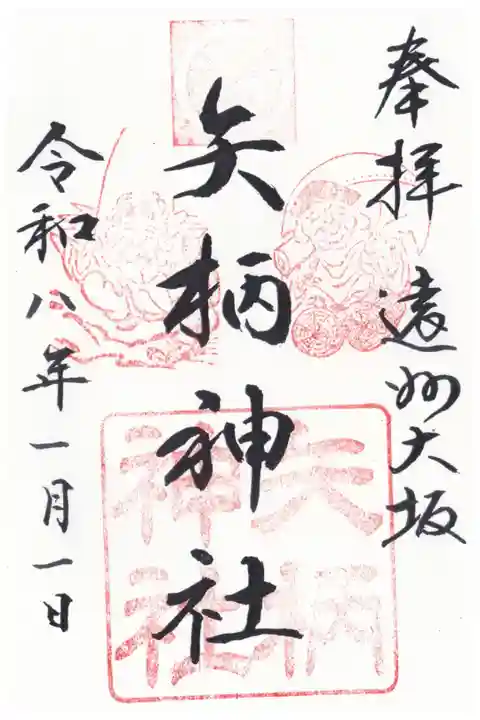 奉拝　遠州大坂
矢柄神社
令和八年一月一日
矢柄
神社